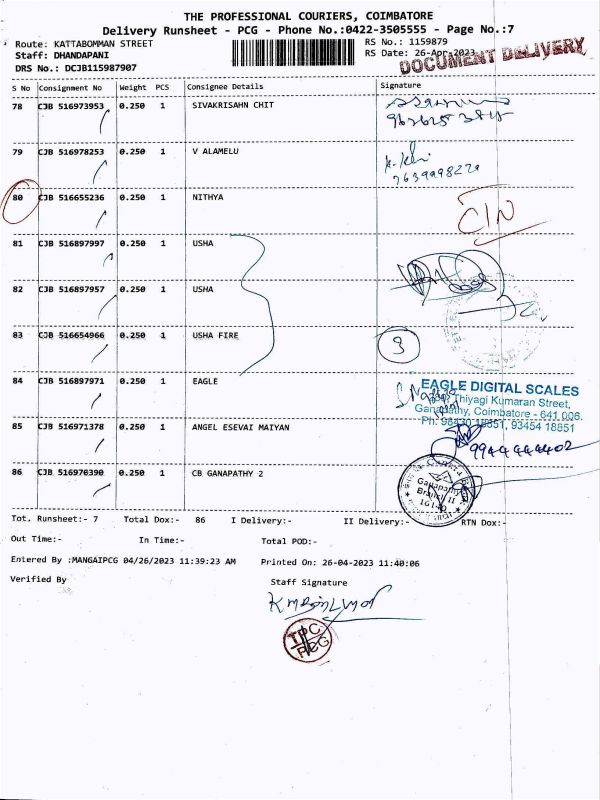 THE PROFESSIONAL COURIERS, COIMBATORE
Delivery Runsheet - PCG - Phone No.:0422-3505555 - Page No.:7
Route: KATTABOMMAN STREET RS No.: 1159879
Staff: DHANDAPANI RS Date: 26-Apr-2023
DOCUMENT DELIVERY
DRS No.: DCJB115987907
S No Consignment No Weight PCS Consignee Details Signature
78 CJB 516973953 0.250 1 SIVAKRISAHN CHIT
79 CJB 516978253 0.250 1 V ALAMELU
7639998220
80 CJB 516655236 0.250 1 NITHYA
CIN
81 CJB 516897997 0.250 1 USHA
82 CJB 516897957 0.250 1 USHA
83 CJB 516654966 0.250 1 USHA FIRE
3
84 CJB 516897971 0.250 1 EAGLE
EAGLE DIGITAL SCALES
Thiyagi Kumaran Street,
Ganapathy, Coimbatore - 641 006.
Ph: 98430 18851, 93454 18851
85 CJB 516971378 0.250 1 ANGEL ESEVAI MAIYAN
9944444402
86 CJB 516970390 0.250 1 CB GANAPATHY 2
Ganapathy
Branch II
Tot. Runsheet:- 7 Total Dox:- 86 I Delivery:- II Delivery:- RTN Dox:-
Out Time:- In Time:- Total POD:-
Entered By :MANGAIPCG 04/26/2023 11:39:23 AM Printed On: 26-04-2023 11:40:06
Verified By Staff Signature
TPC
PCG